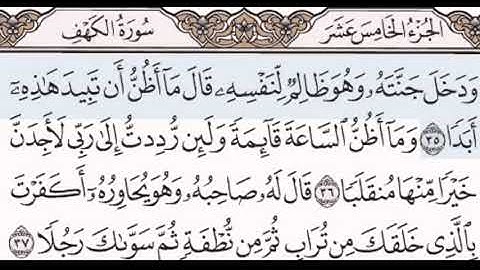 الجزء الخامس عشر سورة الكهف
وَدَخَلَ جَنَّتَهُۥ وَهُوَ ظَالِمٌ لِّنَفْسِهِۦ قَالَ مَآ أَظُنُّ أَن تَبِيدَ هَٰذِهِۦٓ
أَبَدًا ٣٥ وَمَآ أَظُنُّ ٱلسَّاعَةَ قَآئِمَةً وَلَئِن رُّدِدتُّ إِلَىٰ رَبِّى لَأَجِدَنَّ
خَيْرًا مِّنْهَا مُنقَلَبًا ٣٦ قَالَ لَهُۥ صَاحِبُهُۥ وَهُوَ يُحَاوِرُهُۥٓ أَكَفَرْتَ
بِٱلَّذِى خَلَقَكَ مِن تُرَابٍ ثُمَّ مِن نُّطْفَةٍ ثُمَّ سَوَّىٰكَ رَجُلًا ٣٧